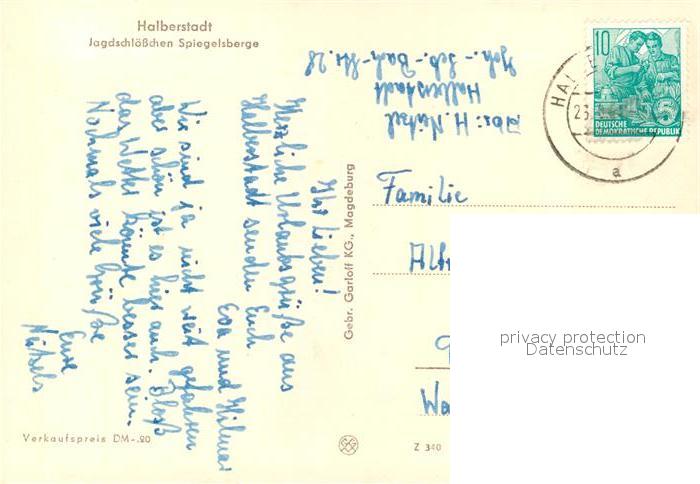 Halberstadt
Jagdschlößchen Spiegelsberge
Abs: H. Nützel
Halberstadt
Joh.-Seb.-Bach-Str. 28
10
5
DEUTSCHE
DEMOKRATISCHE REPUBLIK
HAL
23
a
Ihr Lieben!
Herzliche Urlaubsgrüße aus
Halberstadt senden Euch
Eva und Hilmar
Wir sind ja nicht weit gefahren
aber schön ist es hier auch. Bloß
das Wetter könnte besser sein.
Nochmals viele Grüße
Eure
Nützels
Gebr. Garloff KG., Magdeburg
Familie
privacy protection
Datenschutz
Verkaufspreis DM -.20
Z 340